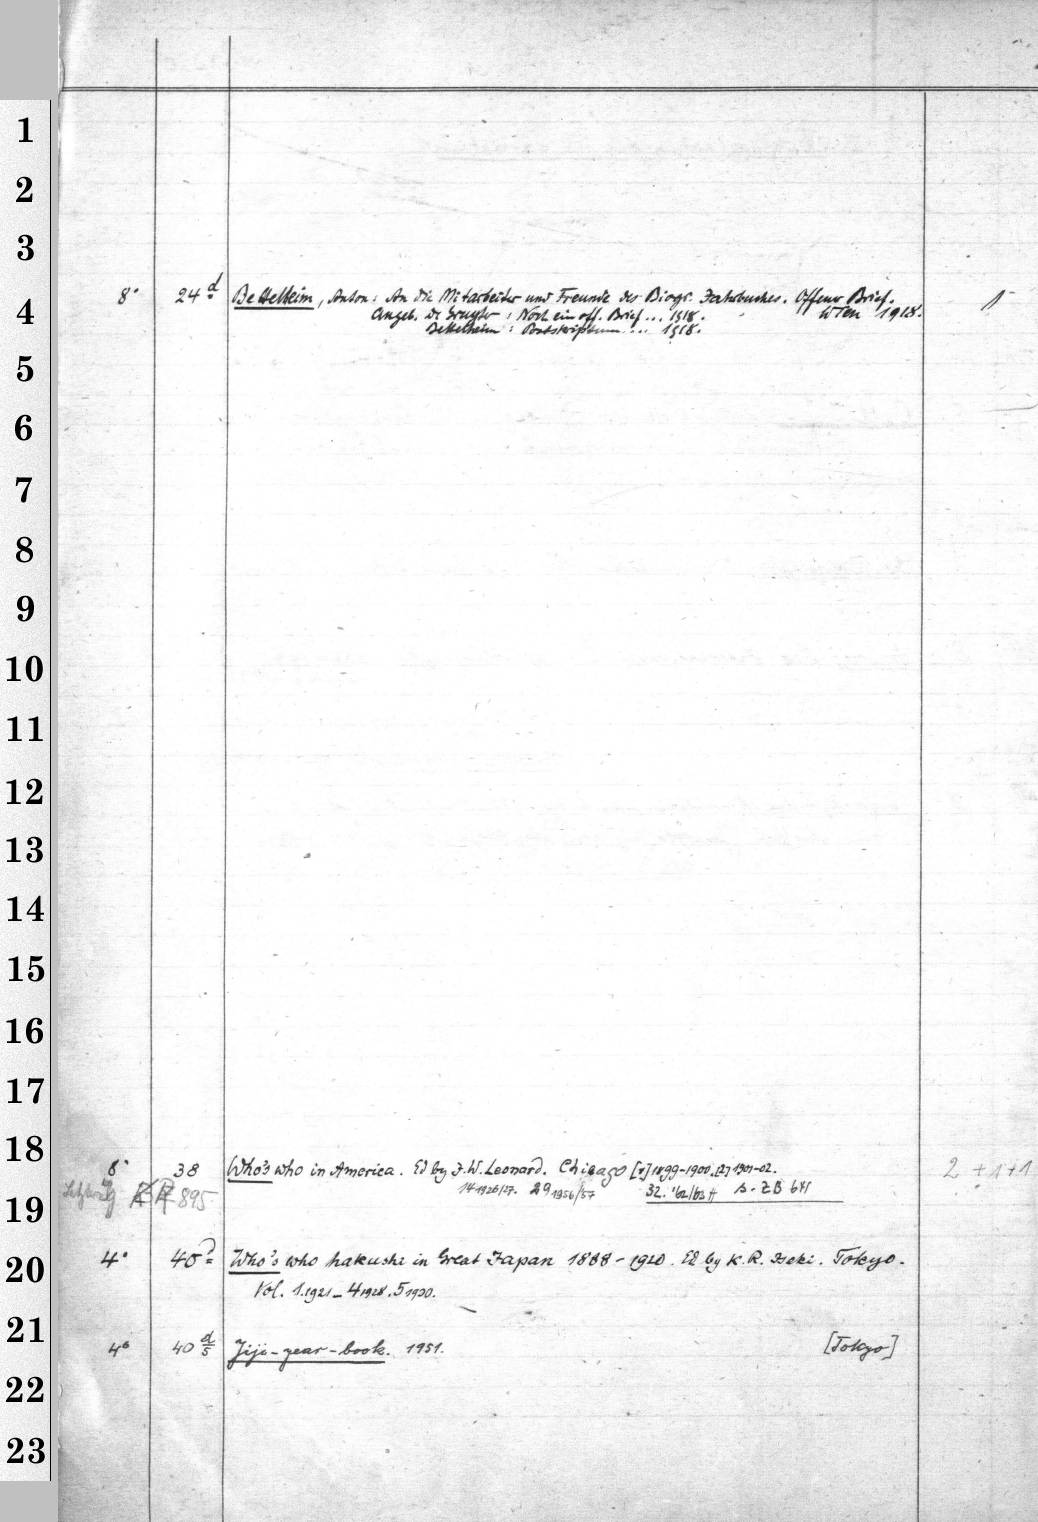 1
2
3
8° 24 d Bettelheim, Anton: An die Mitarbeiter und Freunde des Biogr. Jahrbuches. Offener Brief. 1
4
Angeb. De Gruyter: Noch ein off. Brief ... 1918. Wien 1918.
Bettelheim: Postskriptum ... 1918.
5
6
7
8
9
10
11
12
13
14
15
16
17
18
8° 38 Who's who in America. Ed by J. W. Leonard. Chicago [1] 1899-1900. [2] 1901-02. 2 + 1 + 1
14 1926/27. 29 1956/57 32. '62/63 ff s. ZB 641
19
895
4° 40 Who's who hakushi in Great Japan 1888-1920. Ed by K. R. Iseki. Tokyo.
20
Vol. 1.1921-4 1928. 5 1930.
21
4° 40 d/5 Jiji-year-book. 1951. [Tokyo]
22
23